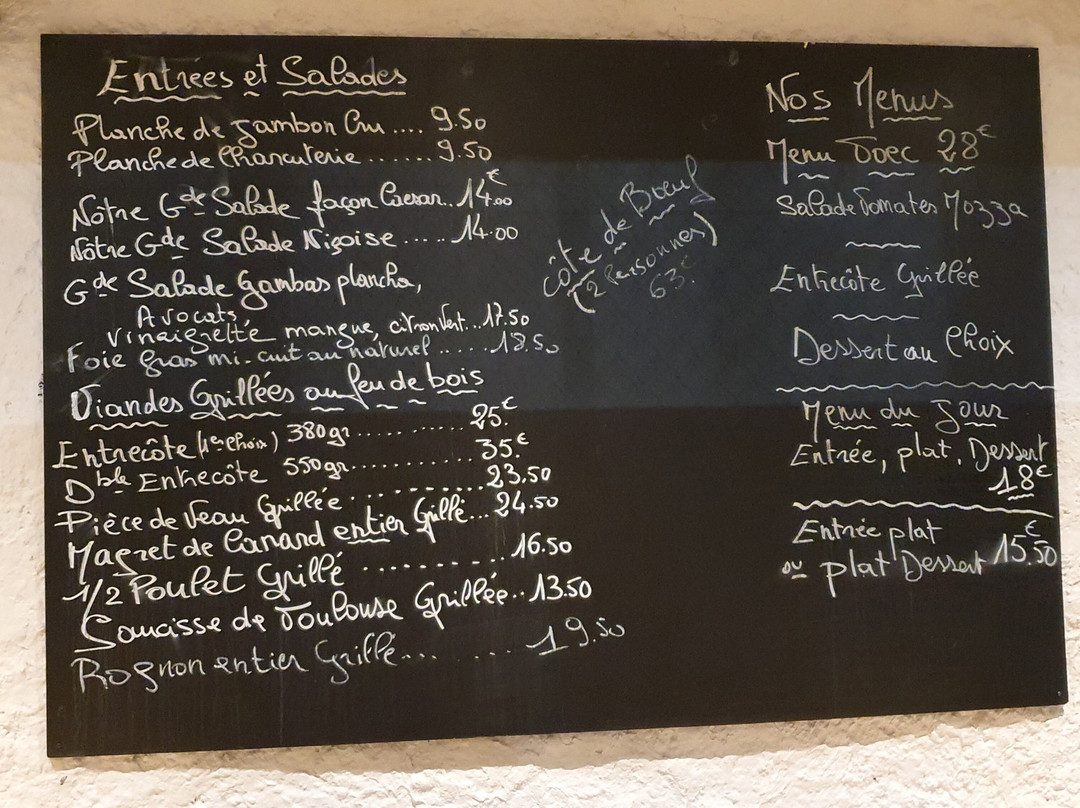 Entrées et Salades
Planche de Jambon Cru .... 9.50
Planche de Charcuterie ....... 9.50
Nôtre Gde Salade façon Caesar.. 14.00€
Nôtre Gde Salade Niçoise ..... 14.00
Gde Salade Gambas plancha,
Avocats,
vinaigrette mangue, citron vert... 17.50
Foie gras mi-cuit au naturel ..... 18.50
Viandes Grillées au feu de bois
Entrecôte (1er Choix) 380gr ........... 25.€
Dble Entrecôte 550gr........... 35.€
Pièce de Veau Grillée .......... 23.50
Magret de Canard entier Grillé... 24.50
1/2 Poulet Grillé .......... 16.50
Saucisse de Toulouse Grillée.. 13.50
Rognon entier Grillé... ...... 19.50
côte de Boeuf
(2 personnes)
63.€
Nos Menus
Menu Doec 28€
Salade Tomates Mozza
Entrecôte Grillée
Dessert au Choix
Menu du Jour
Entrée, plat, Dessert
18€
Entrée plat
ou plat Dessert 15.50€